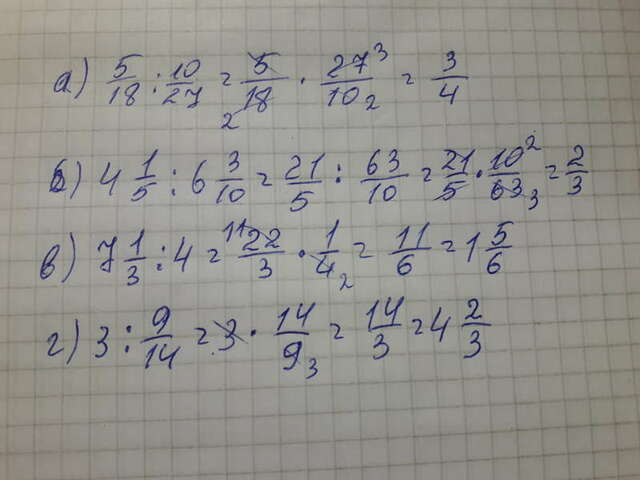 а) 5/18 : 10/27 = 5/18 2 · 27 3/10 2 = 3/4
б) 4 1/5 : 6 3/10 = 21/5 : 63/10 = 21/5 · 10 2/63 3 = 2/3
в) 7 1/3 : 4 = 11 22/3 · 1/4 2 = 11/6 = 1 5/6
г) 3 : 9/14 = 3 · 14/9 3 = 14/3 = 4 2/3